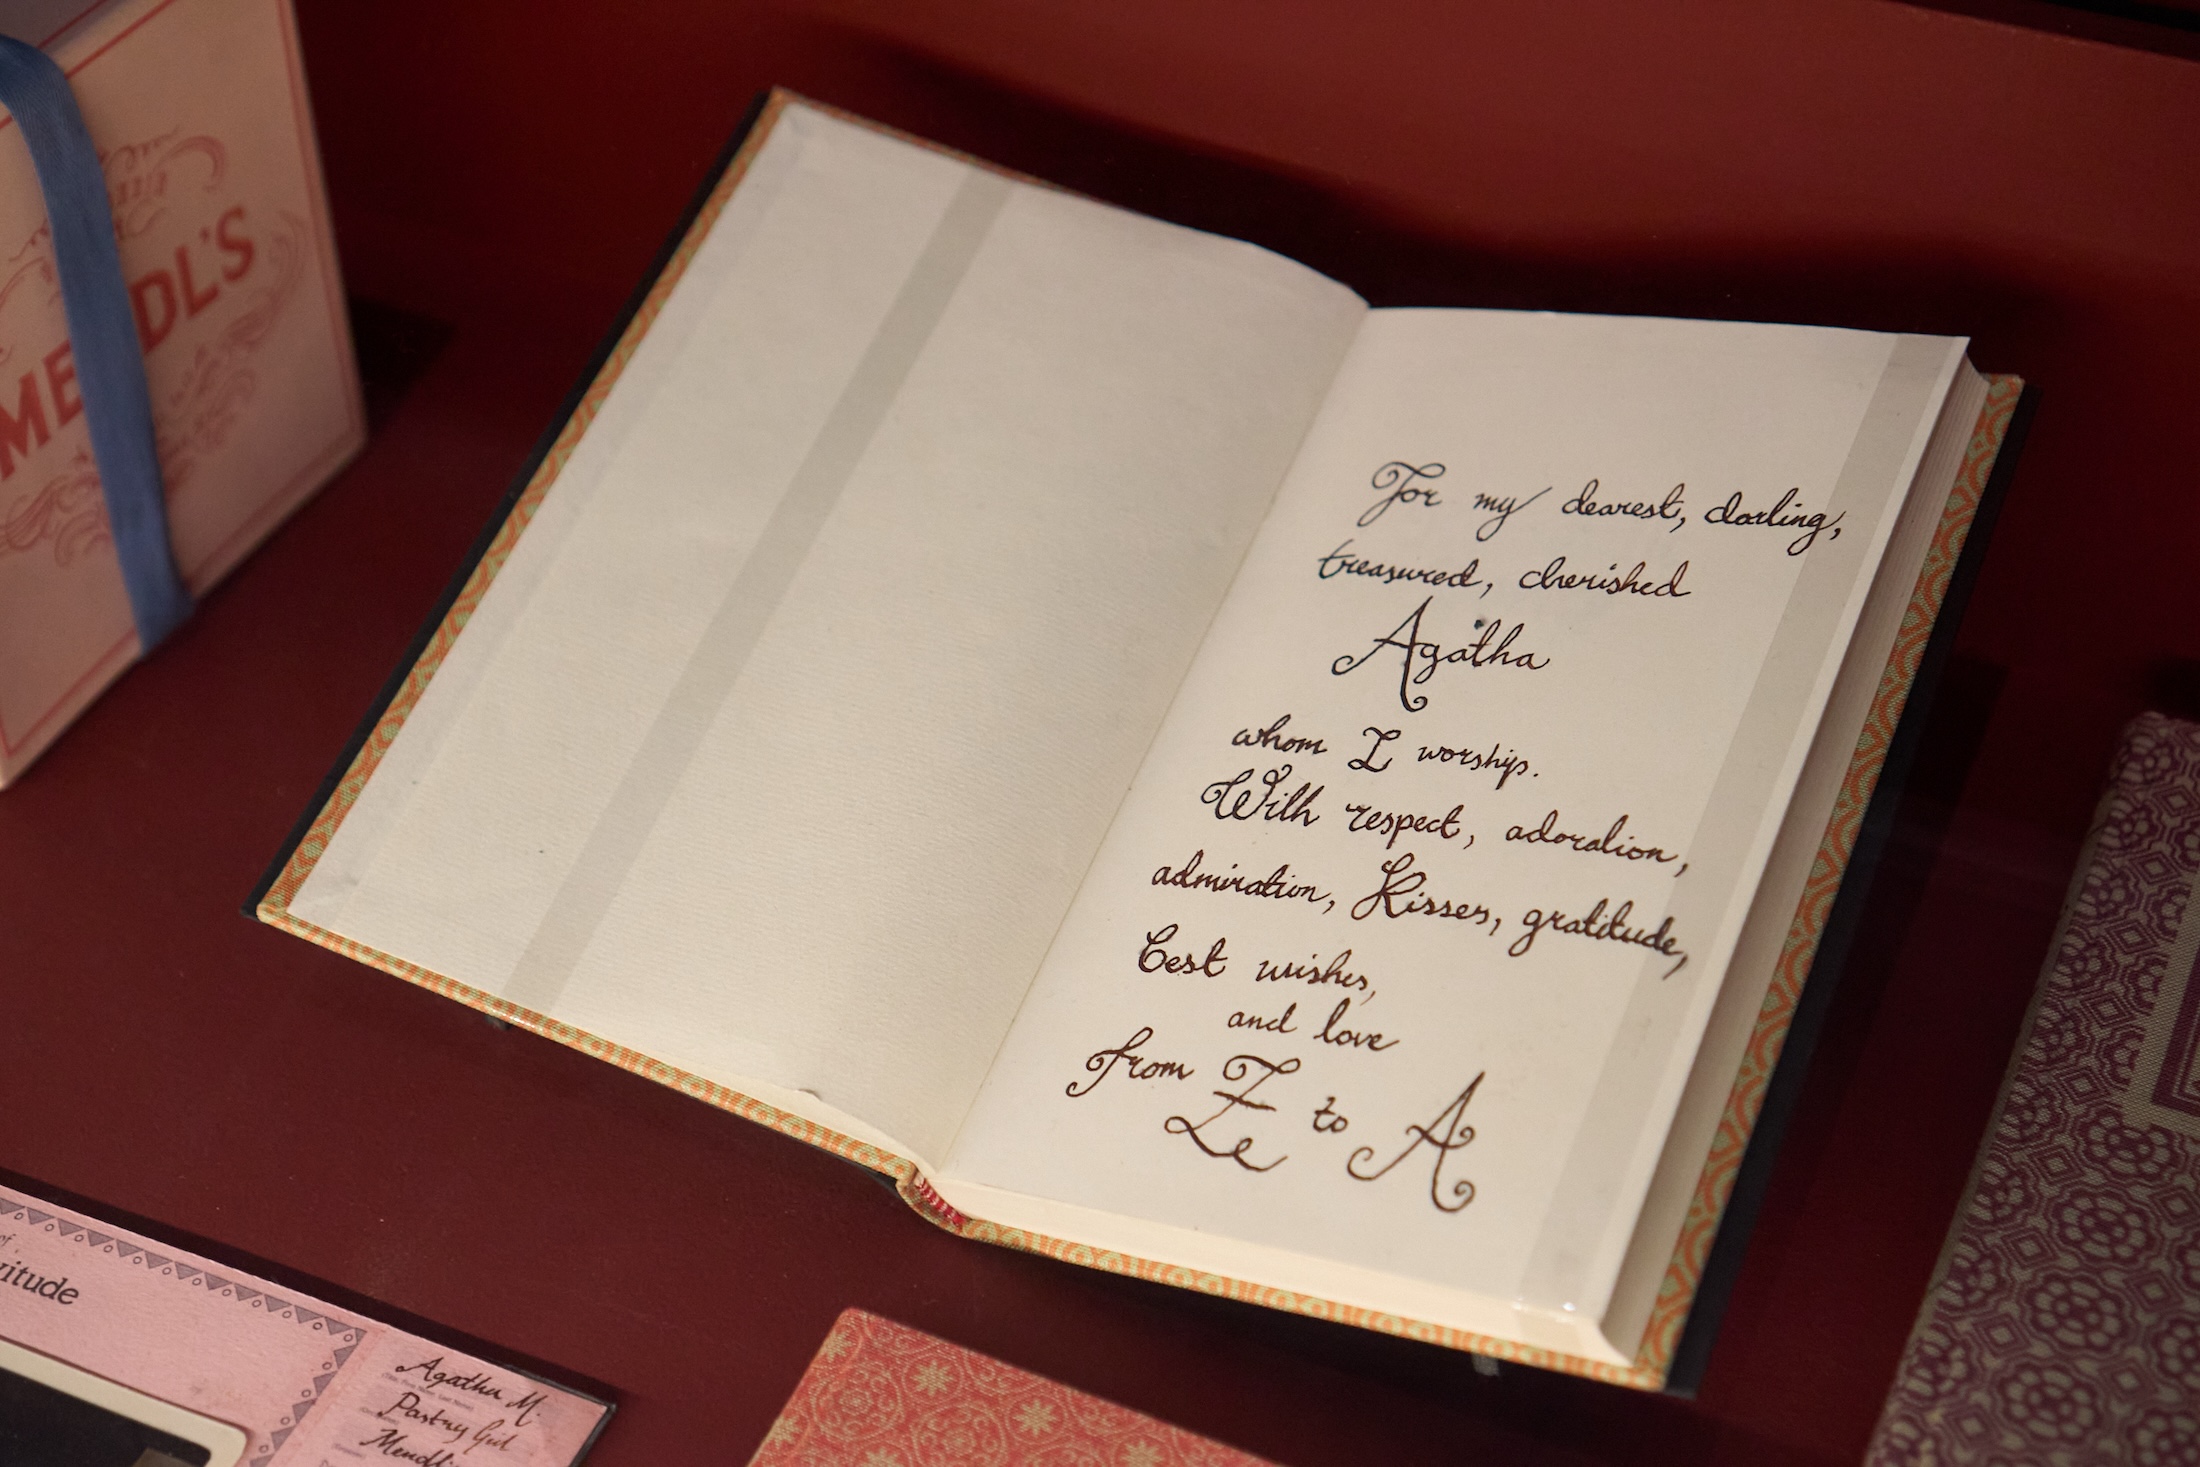 MENDL'S
For my dearest, darling,
treasured, cherished
Agatha
whom I worship.
With respect, adoration,
admiration, Kisses, gratitude,
best wishes,
and love
from Z to A
of
Agatha M.
Pastry Girl